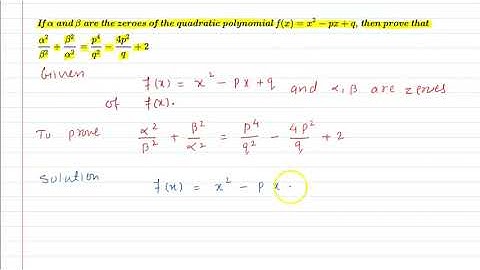 If α and β are the zeroes of the quadratic polynomial f(x) = x² − px + q, then prove that
α²/β² + β²/α² = p⁴/q² − 4p²/q + 2
Given
f(x) = x² − px + q and α, β are zeroes
of f(x).
To prove α²/β² + β²/α² = p⁴/q² − 4p²/q + 2
Solution
f(x) = x² − p x